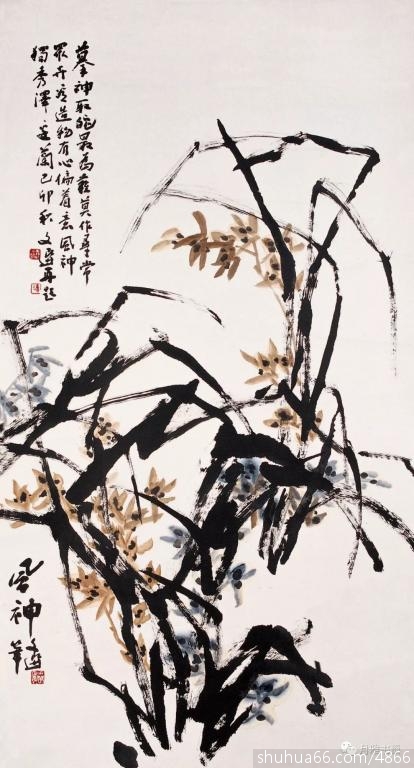 摹神取皃最為難莫作尋常
眾卉看造物有心偏着意風神
獨秀澤邊蘭己卯秋文
再題
風神
筆
shuhua66.com/4866